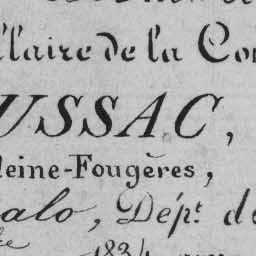 llaire de la Co
USSAC,
leine-Fougères,
alo, Dépt. d
1834